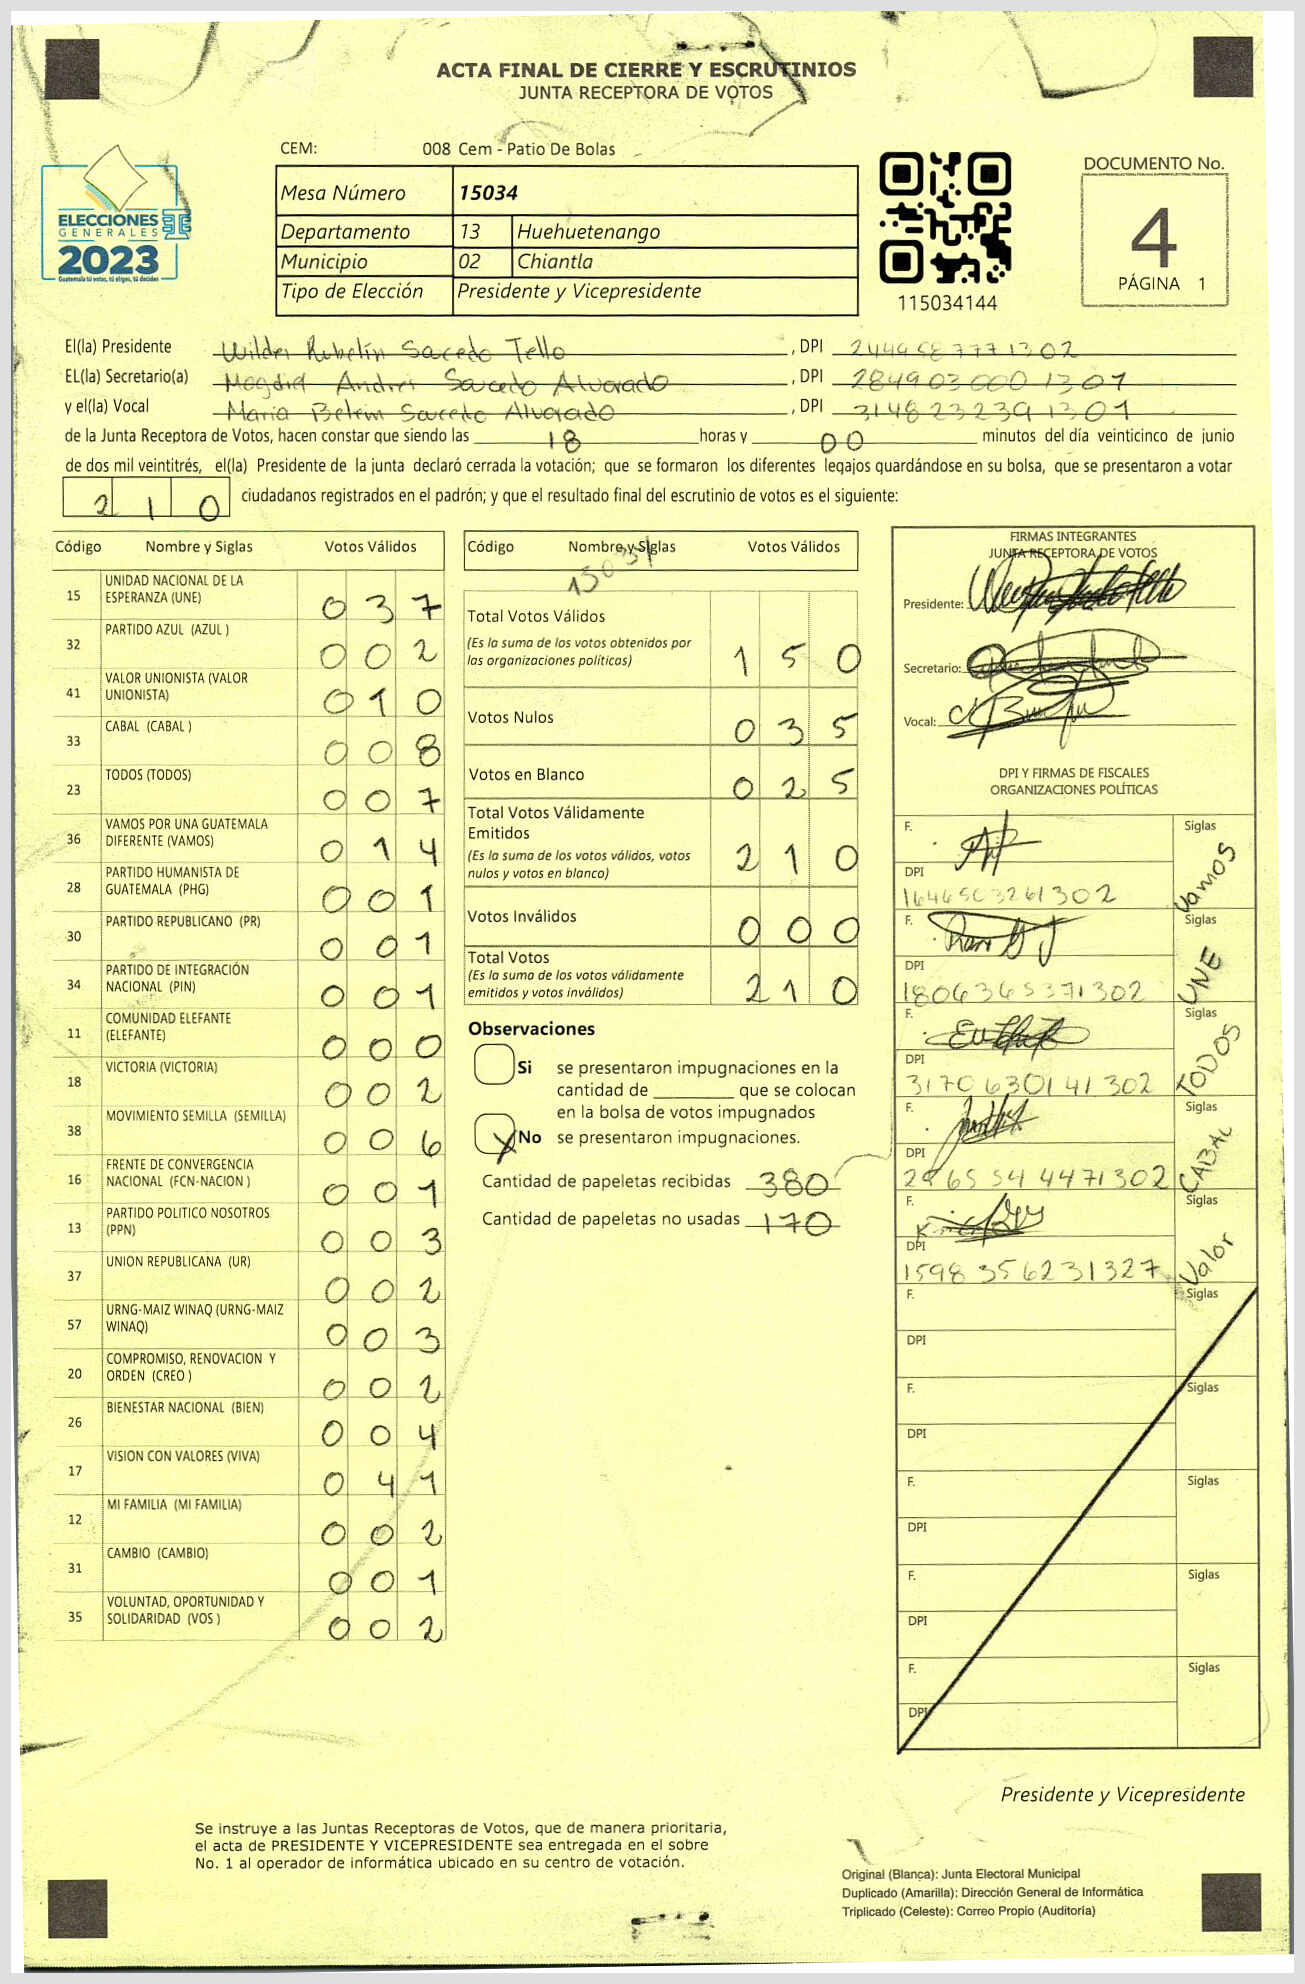 ACTA FINAL DE CIERRE Y ESCRUTINIOS
JUNTA RECEPTORA DE VOTOS
CEM: 008 Cem - Patio De Bolas
ELECCIONES
GENERALES
2023
Guatemala tú votas, tú eliges, tú decides
Mesa Número 15034
Departamento 13 Huehuetenango
Municipio 02 Chiantla
Tipo de Elección Presidente y Vicepresidente
115034144
DOCUMENTO No.
4
PÁGINA 1
El(la) Presidente Wilder Rubelín Saucedo Tello, DPI 2444587771302
EL(la) Secretario(a) Magdiel Andres Saucedo Alvarado, DPI 2849030001301
y el(la) Vocal Maria Belem Saucedo Alvarado, DPI 3148232391301
de la Junta Receptora de Votos, hacen constar que siendo las 18 horas y 00 minutos del día veinticinco de junio
de dos mil veintitrés, el(la) Presidente de la junta declaró cerrada la votación; que se formaron los diferentes legajos guardándose en su bolsa, que se presentaron a votar
210 ciudadanos registrados en el padrón; y que el resultado final del escrutinio de votos es el siguiente:
Código Nombre y Siglas Votos Válidos
15 UNIDAD NACIONAL DE LA ESPERANZA (UNE) 037
32 PARTIDO AZUL (AZUL ) 002
41 VALOR UNIONISTA (VALOR UNIONISTA) 010
33 CABAL (CABAL ) 008
23 TODOS (TODOS) 007
36 VAMOS POR UNA GUATEMALA DIFERENTE (VAMOS) 014
28 PARTIDO HUMANISTA DE GUATEMALA (PHG) 001
30 PARTIDO REPUBLICANO (PR) 001
34 PARTIDO DE INTEGRACIÓN NACIONAL (PIN) 001
11 COMUNIDAD ELEFANTE (ELEFANTE) 000
18 VICTORIA (VICTORIA) 002
38 MOVIMIENTO SEMILLA (SEMILLA) 006
16 FRENTE DE CONVERGENCIA NACIONAL (FCN-NACION ) 001
13 PARTIDO POLITICO NOSOTROS (PPN) 003
37 UNION REPUBLICANA (UR) 002
57 URNG-MAIZ WINAQ (URNG-MAIZ WINAQ) 003
20 COMPROMISO, RENOVACION Y ORDEN (CREO ) 002
26 BIENESTAR NACIONAL (BIEN) 004
17 VISION CON VALORES (VIVA) 041
12 MI FAMILIA (MI FAMILIA) 002
31 CAMBIO (CAMBIO) 001
35 VOLUNTAD, OPORTUNIDAD Y SOLIDARIDAD (VOS ) 002
Código Nombre y Siglas Votos Válidos
15034
Total Votos Válidos
(Es la suma de los votos obtenidos por
las organizaciones políticas) 150
Votos Nulos 035
Votos en Blanco 025
Total Votos Válidamente
Emitidos
(Es la suma de los votos válidos, votos
nulos y votos en blanco) 210
Votos Inválidos 000
Total Votos
(Es la suma de los votos válidamente
emitidos y votos inválidos) 210
Observaciones
Si se presentaron impugnaciones en la
cantidad de ________ que se colocan
en la bolsa de votos impugnados
X No se presentaron impugnaciones.
Cantidad de papeletas recibidas 380
Cantidad de papeletas no usadas 170
FIRMAS INTEGRANTES
JUNTA RECEPTORA DE VOTOS
Presidente:
Secretario:
Vocal:
DPI Y FIRMAS DE FISCALES
ORGANIZACIONES POLÍTICAS
F. Siglas Vamos
DPI 1646503261302
F. Siglas UNE
DPI 1806365371302
F. Siglas TODOS
DPI 3170630141302
F. Siglas CABAL
DPI 2965544471302
F. Siglas Valor
DPI 1598356231327
F. Siglas
DPI
F. Siglas
DPI
F. Siglas
DPI
F. Siglas
DPI
F. Siglas
DPI
Presidente y Vicepresidente
Se instruye a las Juntas Receptoras de Votos, que de manera prioritaria,
el acta de PRESIDENTE Y VICEPRESIDENTE sea entregada en el sobre
No. 1 al operador de informática ubicado en su centro de votación.
Original (Blanca): Junta Electoral Municipal
Duplicado (Amarilla): Dirección General de Informática
Triplicado (Celeste): Correo Propio (Auditoría)